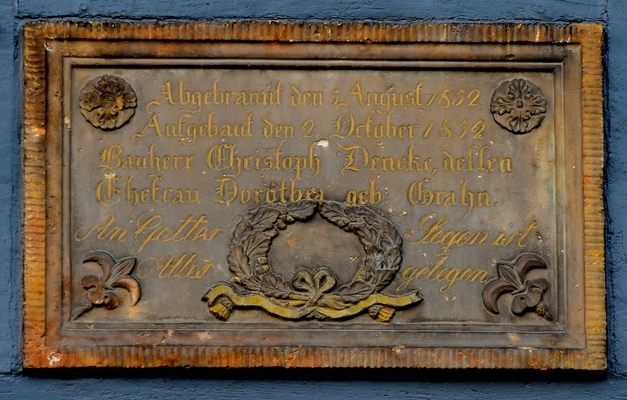 Abgebrannt den 5 August 1852
Aufgebaut den 2. October 1852
Bauherr Christoph Deneke, dessen
Ehefrau Dorothea geb. Grahn.
An Gottes Segen ist
Alles gelegen